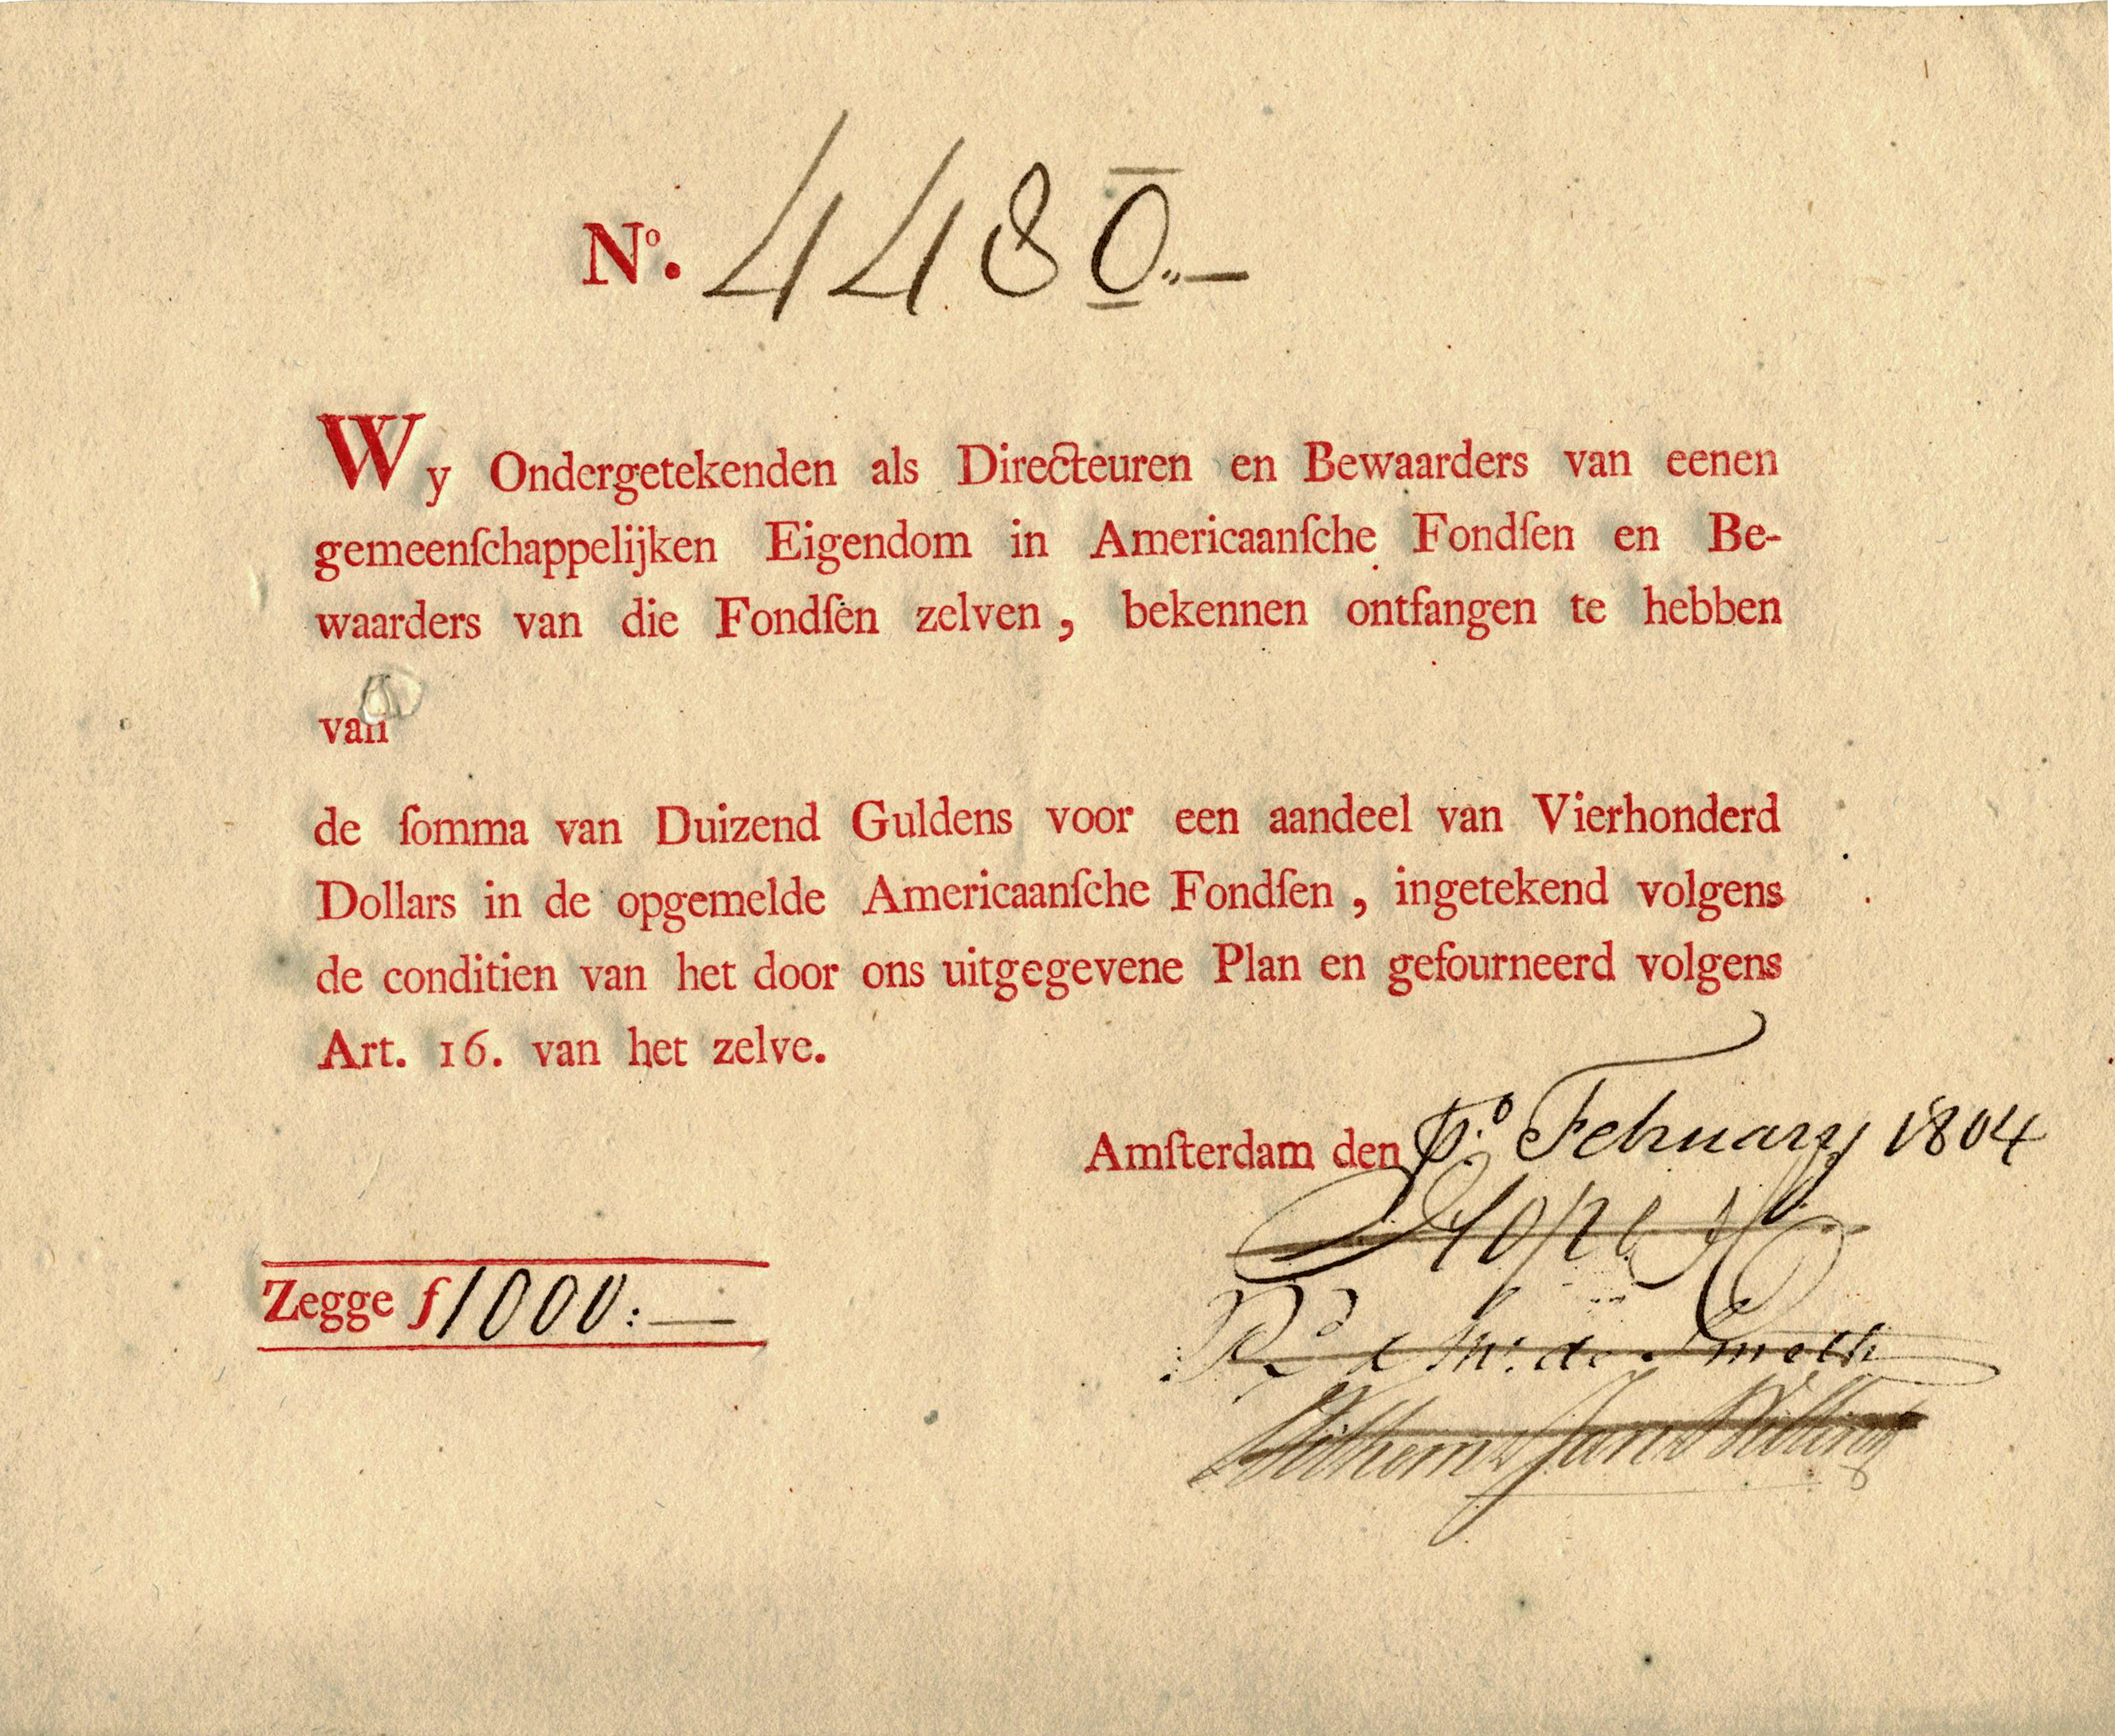 Nº. 4480.„—
Wy Ondergetekenden als Directeuren en Bewaarders van eenen
gemeenſchappelijken Eigendom in Americaanſche Fondſen en Be-
waarders van die Fondſen zelven, bekennen ontfangen te hebben
van
de ſomma van Duizend Guldens voor een aandeel van Vierhonderd
Dollars in de opgemelde Americaanſche Fondſen, ingetekend volgens
de conditien van het door ons uitgegevene Plan en gefourneerd volgens
Art. 16. van het zelve.
Amſterdam den Pº. February 1804
Hope
Rd & Th: de Smeth
Wilhem & Jan Willink
Zegge ƒ1000:—